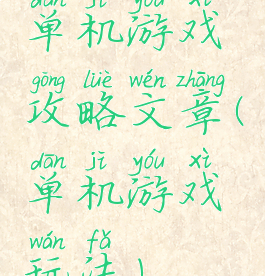 dān jī yóu xì
单机游戏
gōng lüè wén zhāng
攻略文章(
dān jī yóu xì
单机游戏
wán fǎ
玩法)